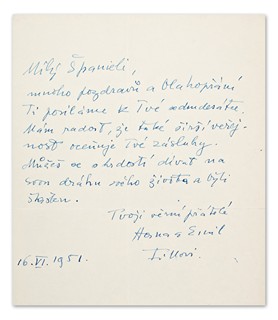 Milý Španieli,
mnoho pozdravů a blahopřání
Ti posíláme k Tvé sedmdesátce.
Mám radost, že také širší veřej-
nost oceňuje Tvé zásluhy.
Můžeš se s hrdostí dívat na
svou dráhu svého života a býti
šťasten.
Tvoji věrní přátelé
Hana a Emil
Fillovi.
16. VI. 1951.